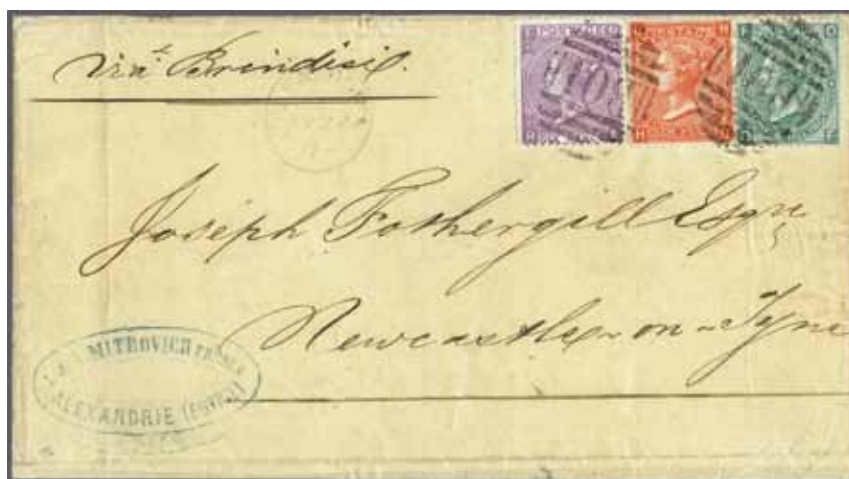 via Brindisi.
Joseph Fothergill Esqre
Newcastle-on-Tyne
MITROVICH FRÈRES
ALEXANDRIE (EGYPTE)
POSTAGE